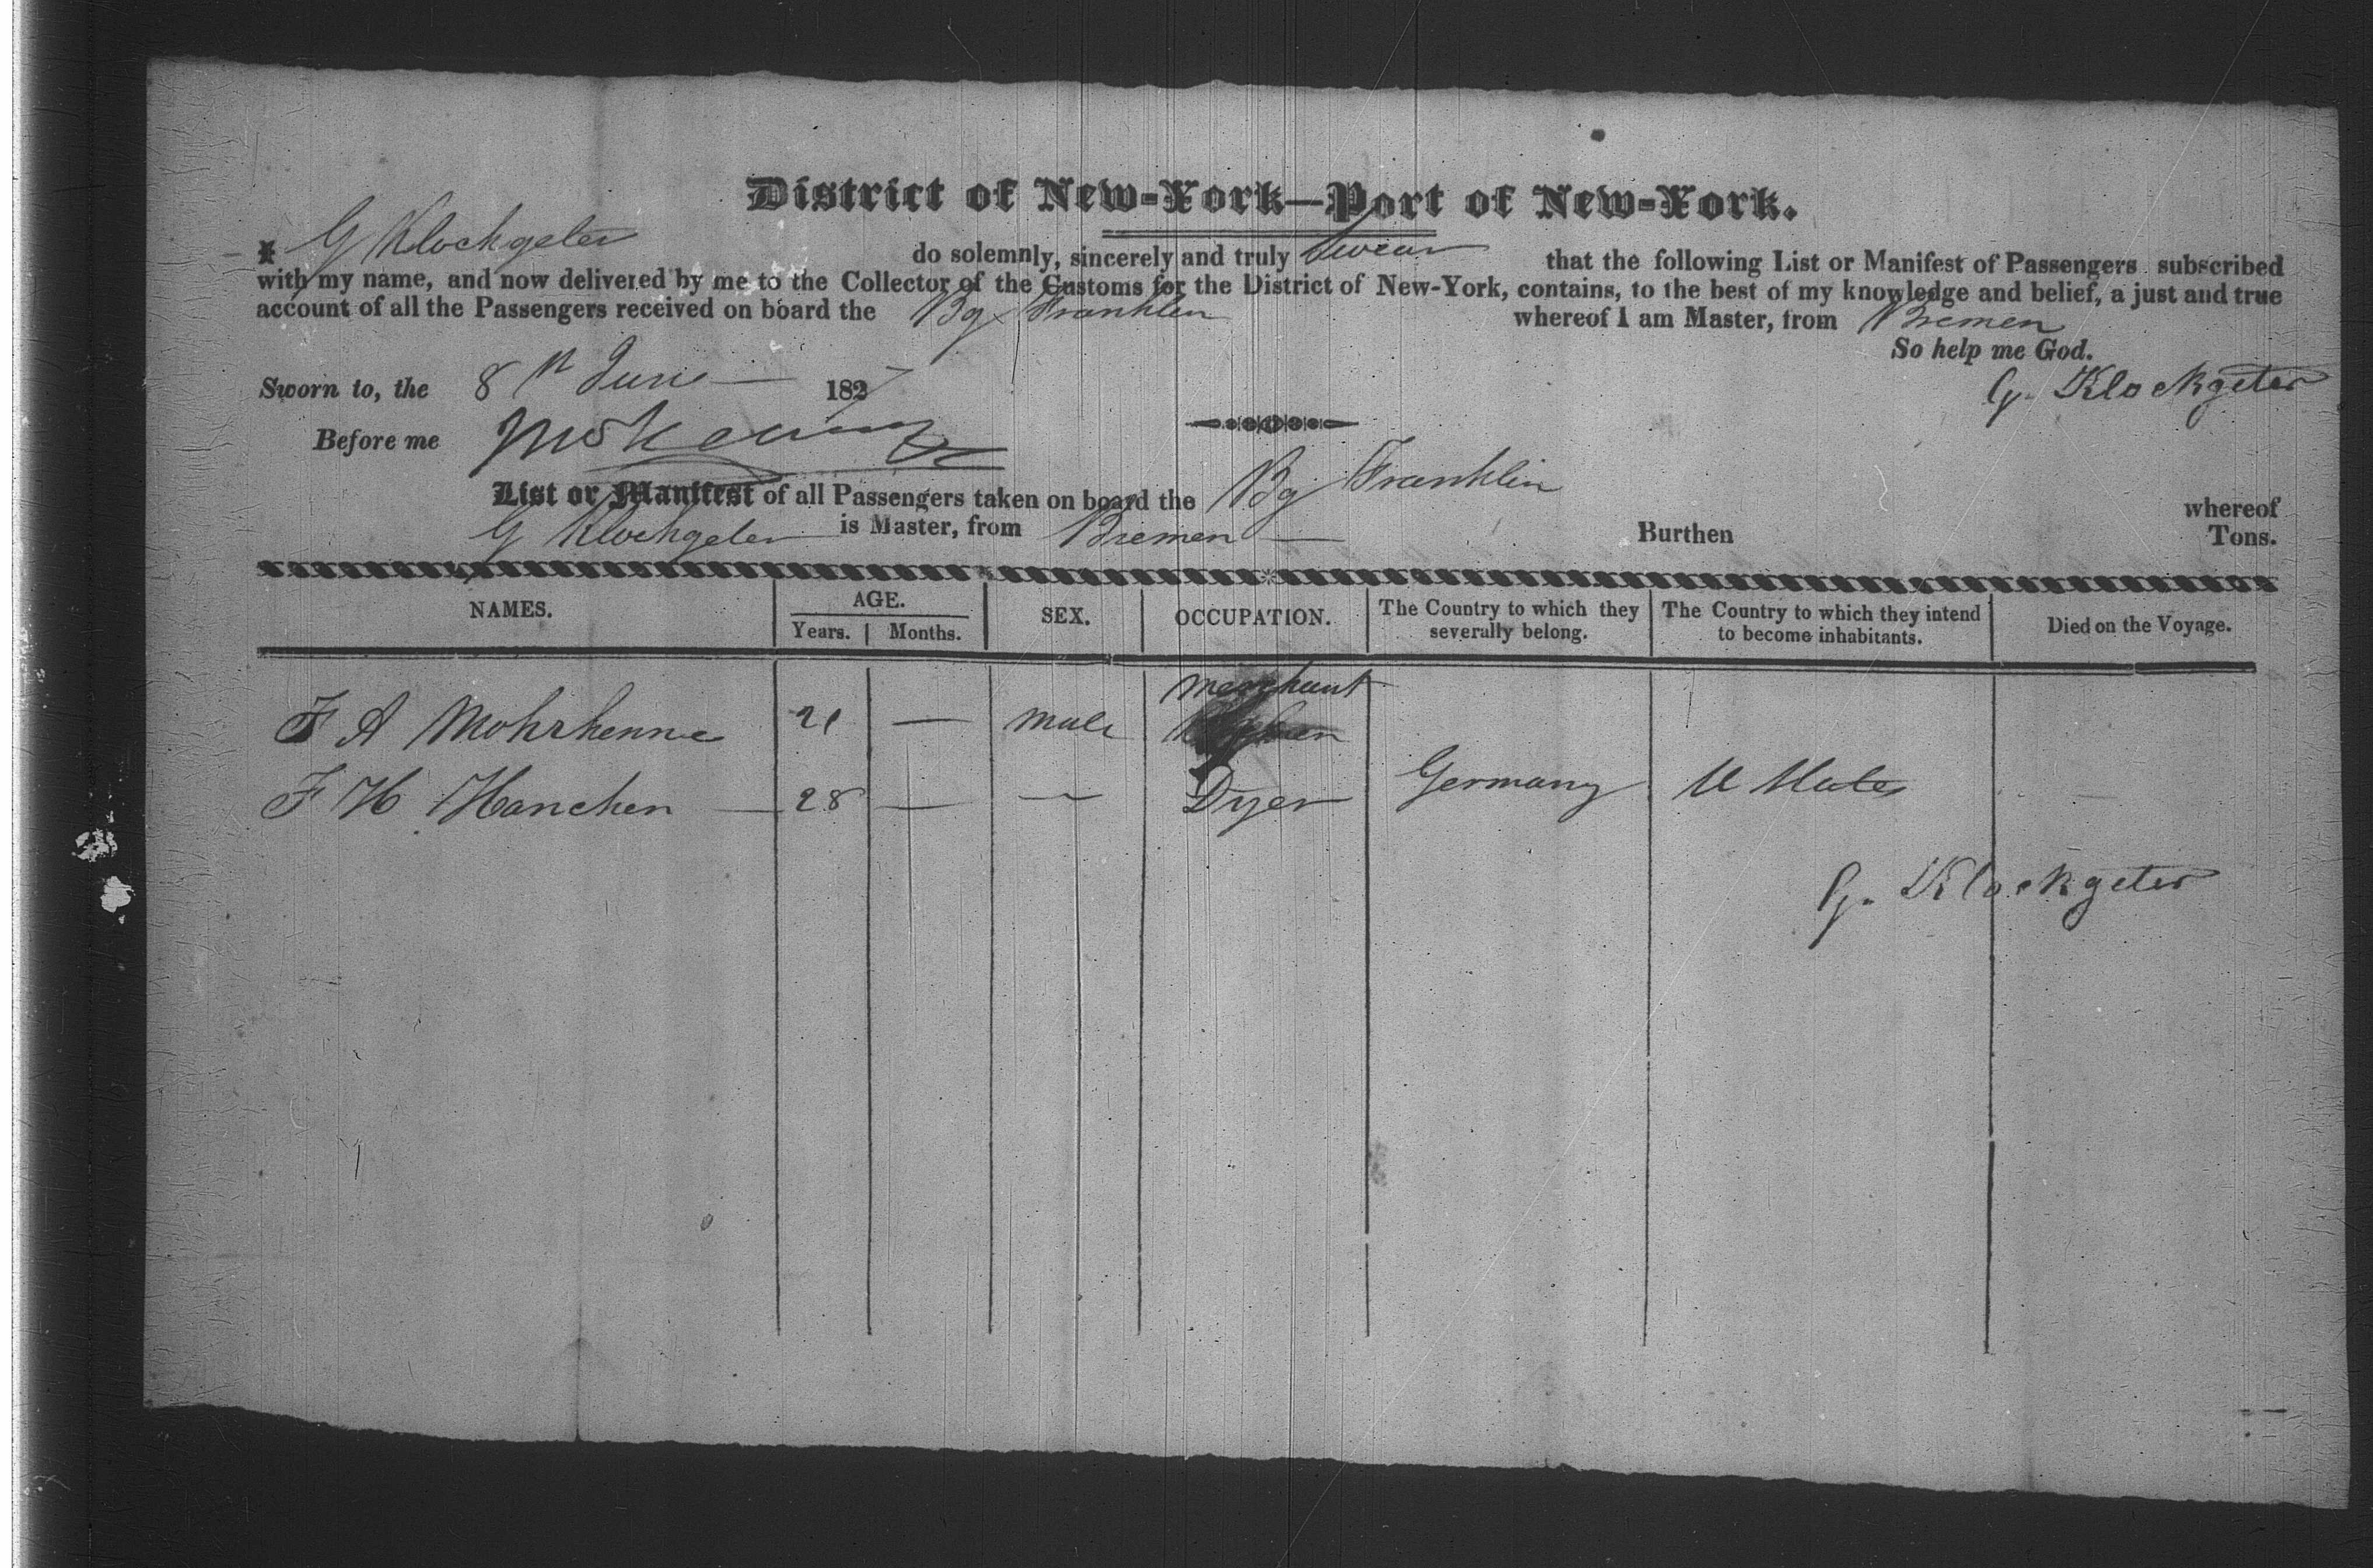 District of New-York—Port of New-York.
I G Klockgeter do solemnly, sincerely and truly Swear that the following List or Manifest of Passengers subscribed
with my name, and now delivered by me to the Collector of the Customs for the District of New-York, contains, to the best of my knowledge and belief, a just and true
account of all the Passengers received on board the Bg Franklin whereof I am Master, from Bremen
So help me God.
Sworn to, the 8th June 1827 G. Klockgeter
Before me
List or Manifest of all Passengers taken on board the Bg Franklin whereof
G Klockgeter is Master, from Bremen Burthen Tons.
NAMES. AGE. Years. Months. SEX. OCCUPATION. The Country to which they severally belong. The Country to which they intend to become inhabitants. Died on the Voyage.
merchant
F A Mohrhenne 21 — male
F H Hanchen — 28 — — Dyer Germany U States
G. Klockgeter